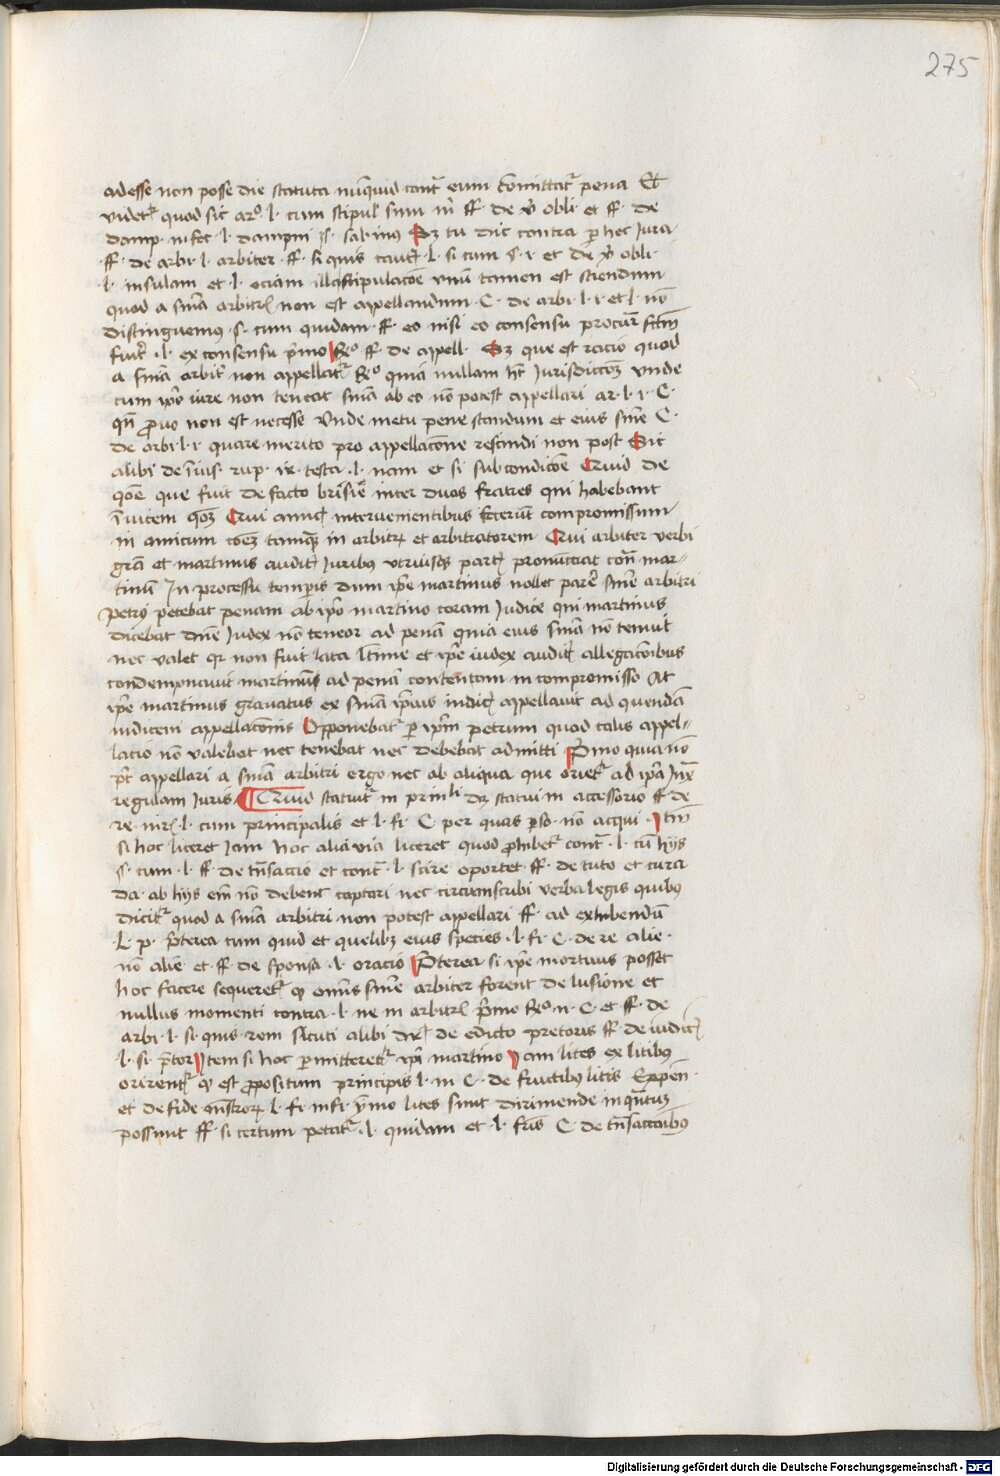 275
adesse non posse die statuta nunquid cont̄ eum comittat᷑ pena Et
videt᷑ quod sic ar° l. cum stipul sum in ff. de v̄ obli et ff. de
damp. infec l. dampni §. sabinus Sz tu dic contra p hec iura
ff. de arbi l. arbiter ff. si quis caut l. si cum §. 1 et de v̄ obli.
l. insulam et l. eciam illa stipulacōe vnū tamen est sciendum
quod a sn̄ia arbitri non est appellandum C. de arbi l. 1. et l. nō
distinguemus §. cum quidam ff. eo nisi eo consensu procur̄ fct̄m
fuit l. ex consensu p̄mo R° ff. de appell. Sz que est racio quod
a sn̄ia arbit᷑ non appellat᷑ R° quia nullam ht̄ Jurisdiccōꝫ vnde
cum ip̄o iure non teneat sn̄ia ab eo nō potest appellari ar. l. 1. C.
qn̄ ꝓuo non est necesse vnde metu pene standum et eius sn̄ie C.
de arbi l. 1 quare merito pro appellacōne rescindi non post Sic
alibi de iniust rup. ir. testa l. nam et si sub condicōe Quid de
qōe que fuit de facto inter duos fratres qui habebant
īuicem qōꝫ Qui amicis intervenientibus fecerūt compromissum
in amicum cōeꝫ tamqꝫ in arbitrꝫ et arbitratorem Qui arbiter verbi
gr̄a et martinus audit Juribus vtriusqꝫ part pronunciat con̄ mar-
tinū In processu temporis dum ip̄e martinus nollet parē sn̄ie arbitri
petrus petebat penam ab ip̄o martino coram Judice qui martinus
dicebat dn̄e Judex nō teneor ad penā quia eius sn̄ia nō tenuit
nec valet qr non fuit lata l̄time et ip̄e iudex audit allegacōibus
condempnauit martinū ad penā contentam in compromisso At
ip̄e martinus grauatus ex sn̄ia ip̄ius iudic appellauit ad quendā
iudicem appellacōnis Opponebat᷑ p ip̄m petrum quod talis appel-
lacio nō valebat nec tenebat nec debebat admitti P̄mo quia nō
pt̄ appellari a sn̄ia arbitri ergo nec ab aliqua que oriet᷑ ad ip̄a Jux̄
regulam Juris Quid statuit᷑ in prin̄li dꝫ statui in accessorio ff. de
re. iur l. cum principalis et l. fi. C. per quas pso. nō acqui. Itm̄
si hoc liceret Jam hoc alia via liceret quod ꝓhibet᷑ cont̄ l. cū hijs
§. cum l. ff. de tn̄saccio et cont̄ l. scire oportet ff. de tuto et cura
da. ab hijs em̄ nō debent captari nec circumscribi verba legis quibus
dicit᷑ quod a sn̄ia arbitri non potest appellari ff. ad exhibendū
l. p. P̄terea cum quid et quelibꝫ eius species l. fi. C. de re. alie.
nō alie et ff. de sponsa l. oracio P̄terea si ip̄e mortuus posset
hoc facere sequeret᷑ qꝫ om̄is sn̄ie arbiter forent delusione et
nullius momenti contra l. ne in arbitrꝫ p̄mo R° n. C. et ff. de
arbi l. si quis rem sicuti alibi dr̄ de edicto pretoris ff. de iudic
l. si p̄tor Item si hoc p̄mitteret᷑ ip̄i martino Jam lites ex litibus
orirent᷑ qꝫ est ꝓpositum principis l. in C. de fructibus litis Expen.
et de fide l. fi. in fi. ymo lites sunt dirimende inq̄ntum
possunt ff. si certum petat᷑ l. quidam et l. frīs C. de tn̄saccōibus
Digitalisierung gefördert durch die Deutsche Forschungsgemeinschaft - DFG